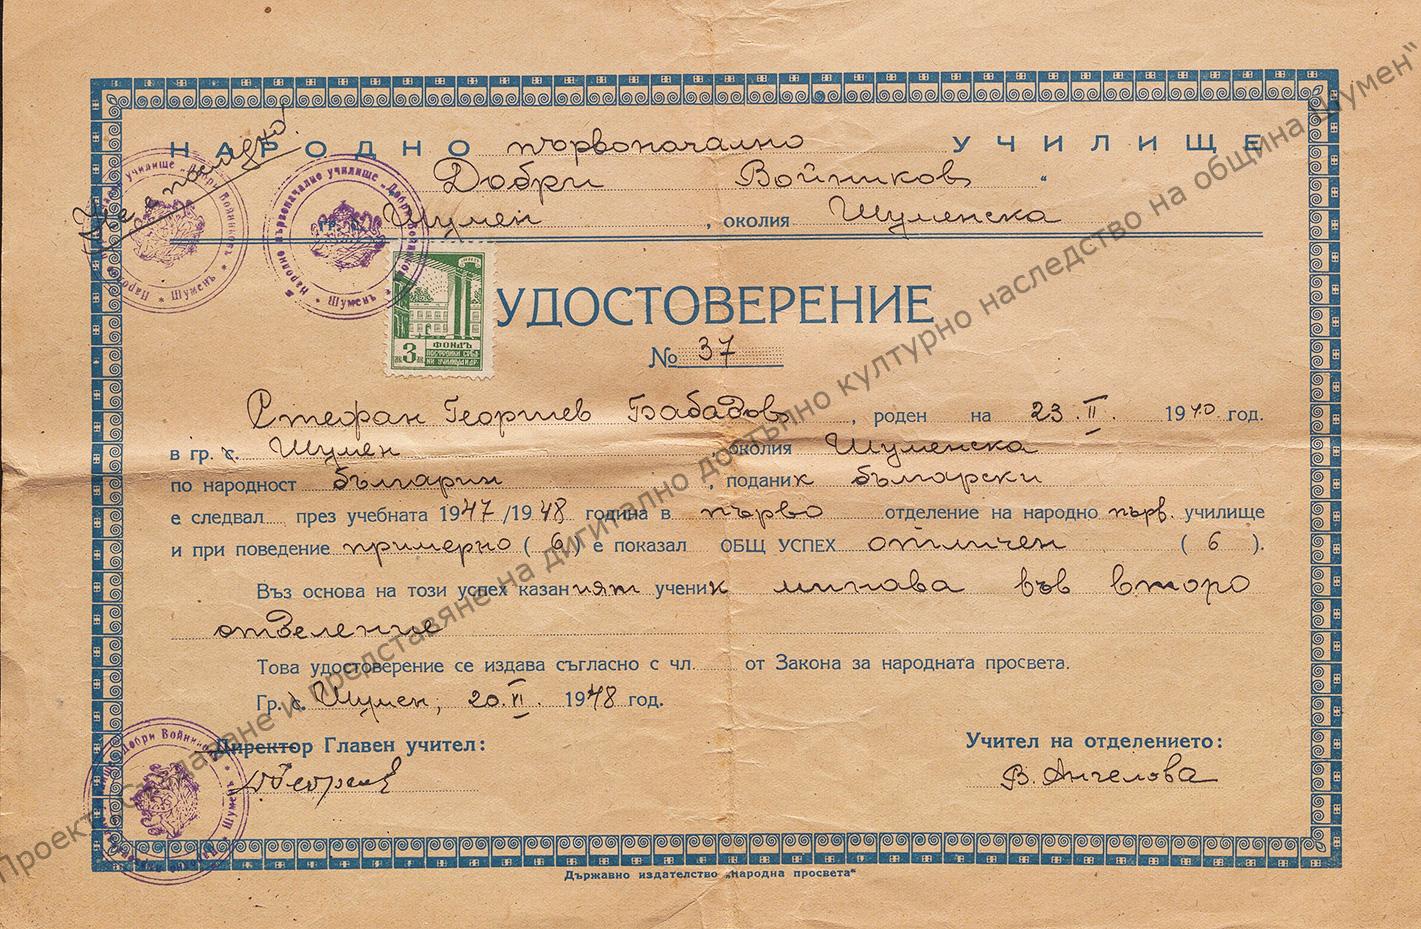 НАРОДНО първоначално УЧИЛИЩЕ
„Добри Войников“
гр. Шумен, околия Шуменска
Народно първоначално училище „Добри Войниковъ“ * Шуменъ *
УДОСТОВЕРЕНИЕ
№ 37
3 лв. ФОНДЪ
Стефан Георгиев Бабадов, роден на 23. II. 1940 год.
в гр. с. Шумен околия Шуменска
по народност българин, поданик български
е следвал през учебната 1947/1948 година в първо отделение на народно първ. училище
и при поведение примерно (6) е показал ОБЩ УСПЕХ отличен (6).
Въз основа на този успех казаният ученик минава във второ
отделение
Това удостоверение се издава съгласно с чл. от Закона за народната просвета.
Гр. с. Шумен, 20. VI. 1948 год.
Директор Главен учител:
Учител на отделението:
В. Ангелова
Държавно издателство „Народна просвета“
Проект „Създаване и представяне на дигитално достъпно културно наследство на община Шумен“